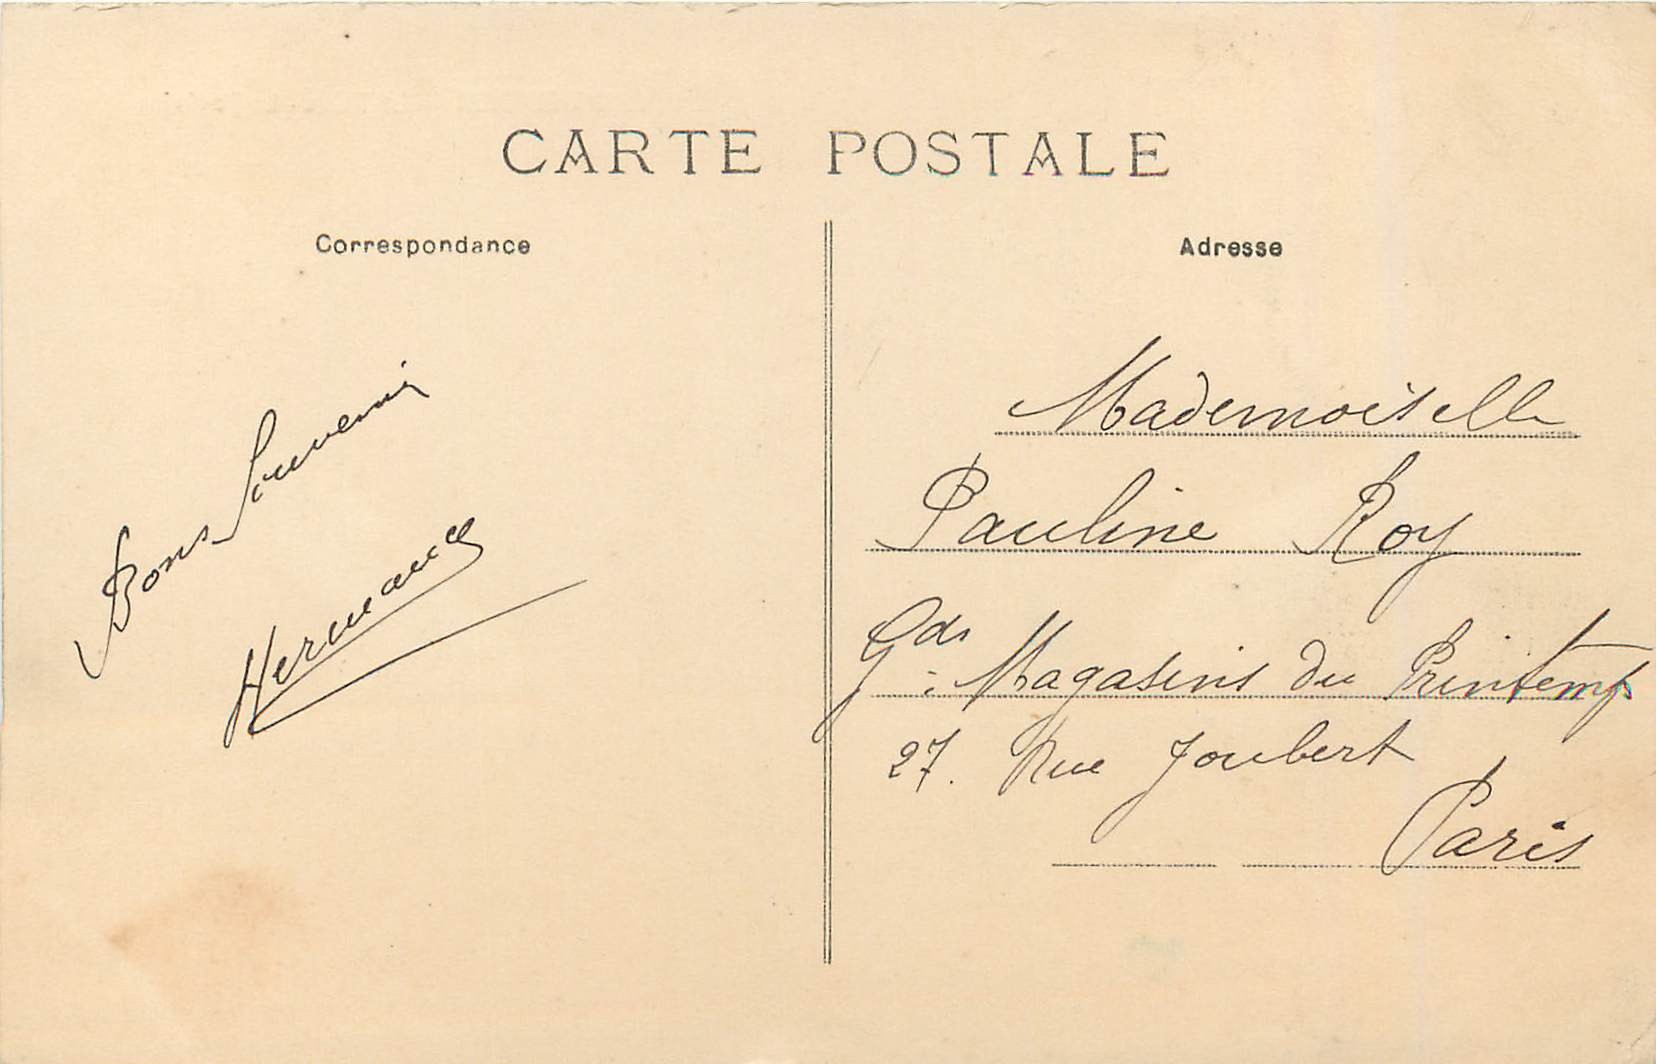 CARTE POSTALE
Correspondance
Bons Souvenirs
Hermance
Adresse
Mademoiselle
Pauline Roy
Gds Magasins du Printemps
27. Rue Joubert
Paris